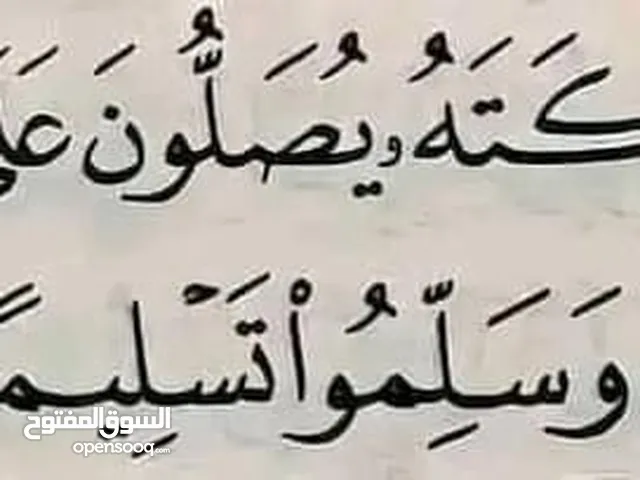 ـكَتَهُۥ يُصَلُّونَ عَلَـ
وَسَلِّمُوا۟ تَسْلِيمًـ
السوق المفتوح
opensooq.com